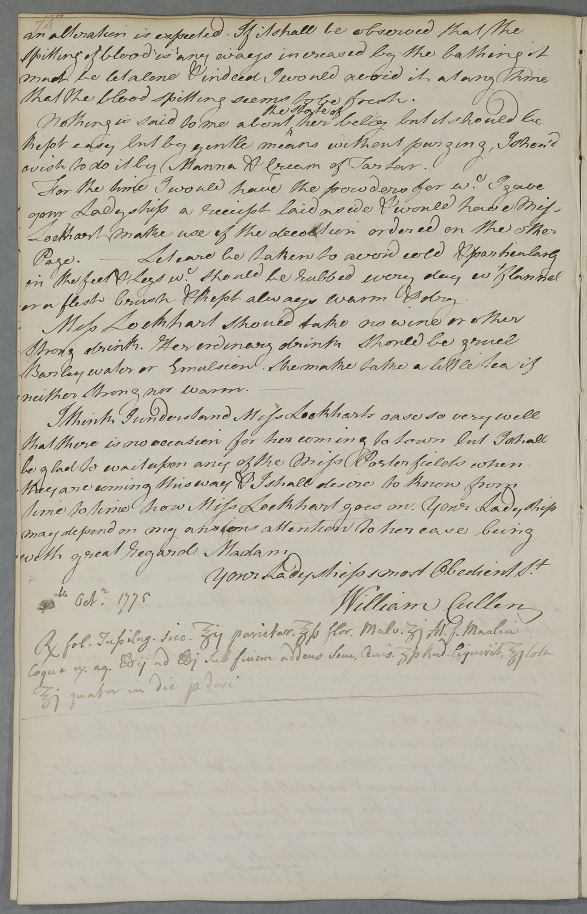 an alteration is expected. If it shall be observed that the
spitting of blood is any ways increased by the bathing it
must be let alone & indeed I would avoid it at any time
that the blood spitting seems to be fresh.
Nothing is said to me about the state of her belly but it should be
kept easy but by gentle means without purging, I shou'd
wish to do it by Manna & Cream of Tartar.
For the time I would have the powders for wc. I gave
your Ladyship a receipt laid aside & would have Miss
Lockhart make use of the decoction ordered on the other
Page. — Let care be taken to avoid cold & particularly
in the feet & Legs wc. should be rubbed every day wt. flannel
or a flesh brush & kept always warm & dry.
Miss Lockhart should take no wine or other
strong drink. Her ordinary drink should be gruel
Barley water or Emulsion. She make take a little tea if
neither strong nor warm. —
I think I understand Miss Lockharts case so very well
that there is no occasion for her coming to town but I shall
be glad to wait upon any of the Miss Porterfields when
they are coming this way & I shall desire to know from
time to time how Miss Lockhart goes on. Your Ladyship
may depend on my anxious attention to her case being
with great regard Madam
Your Ladyships most Obedient St.
William Cullen
Octr. 1775
℞ fol. Tussilag. sicc. ʒij parietar. ʒß flor. Malv. ʒj M. f.
Coque ex aq. ad sub finem addens Sem.
ʒj quater in die p dosi